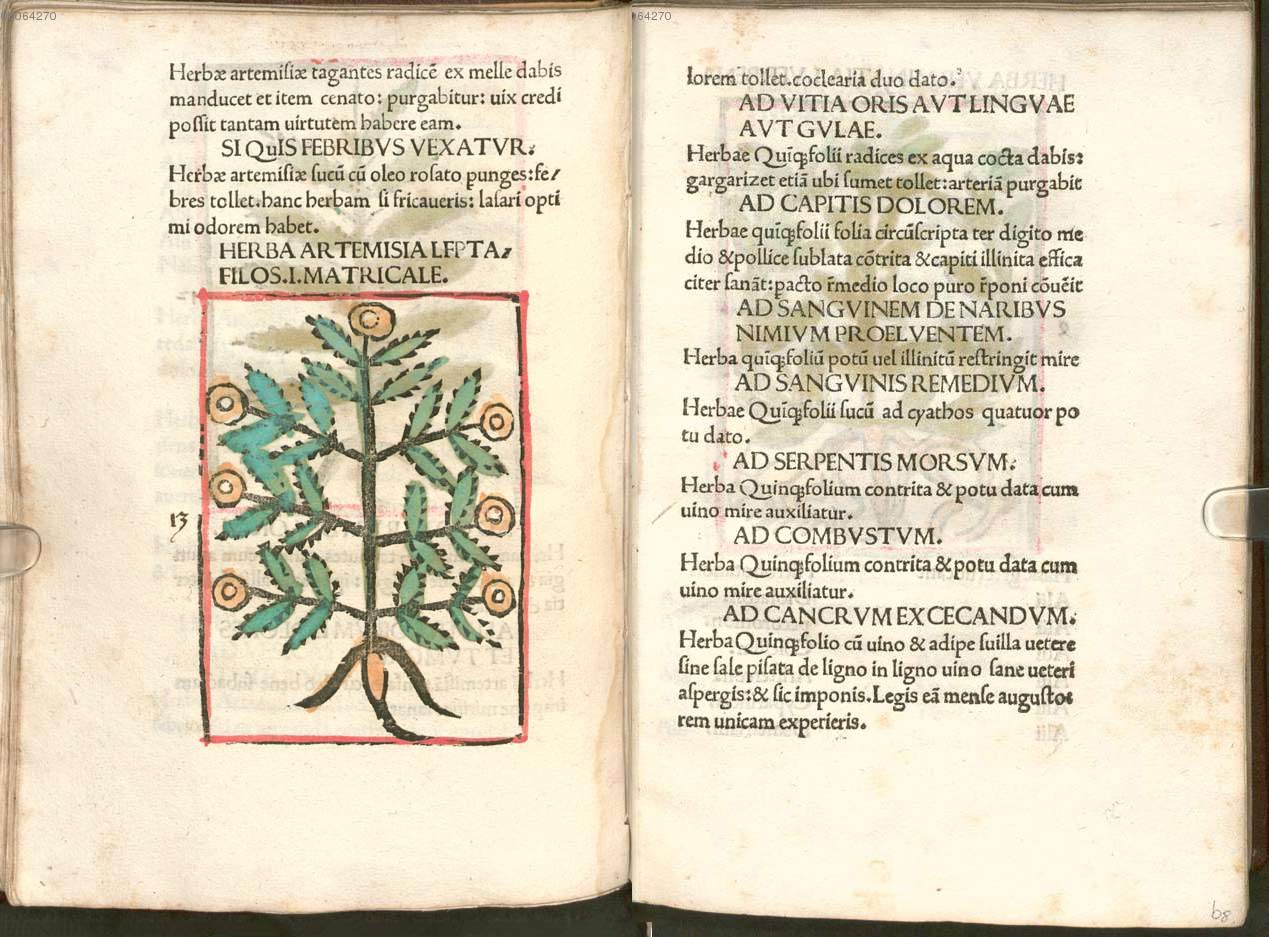 064270
Herbæ artemisiæ tagantes radicē ex melle dabis
manducet et item cenato: purgabitur: uix credi
possit tantam uirtutem habere eam.
SI QuIS FEBRIBVS VEXATVR.
Herbæ artemisiæ sucū cū oleo rosato punges: fe/
bres tollet. hanc herbam si fricaueris: lasari opti
mi odorem habet.
HERBA ARTEMISIA LEPTA/
FILOS.I.MATRICALE.
13
64270
lorem tollet. coclearia duo dato.
AD VITIA ORIS AVT LINGVAE
AVT GVLAE.
Herbae Quīqꝫfolii radices ex aqua cocta dabis:
gargarizet etiā ubi sumet tollet: arteriā purgabit
AD CAPITIS DOLOREM.
Herbae quīqꝫfolii folia circūscripta ter digito me
dio & pollice sublata cōtrita & capiti illinita effica
citer sanāt: pacto r̄medio loco puro r̄poni cōuēit
AD SANGVINEM DE NARIBVS
NIMIVM PROELVENTEM.
Herba quīqꝫfoliū potū uel illinitū restringit mire
AD SANGVINIS REMEDIVM.
Herbae Quīqꝫfolii sucū ad cyathos quatuor po
tu dato.
AD SERPENTIS MORSVM.
Herba Quinqꝫfolium contrita & potu data cum
uino mire auxiliatur.
AD COMBVSTVM.
Herba Quinqꝫfolium contrita & potu data cum
uino mire auxiliatur.
AD CANCRVM EXCECANDVM.
Herba Quinqꝫfolio cū uino & adipe suilla uetere
sine sale pisata de ligno in ligno uino sane ueteri
aspergis: & sic imponis. Legis eā mense augusto:
rem unicam experieris.
b8